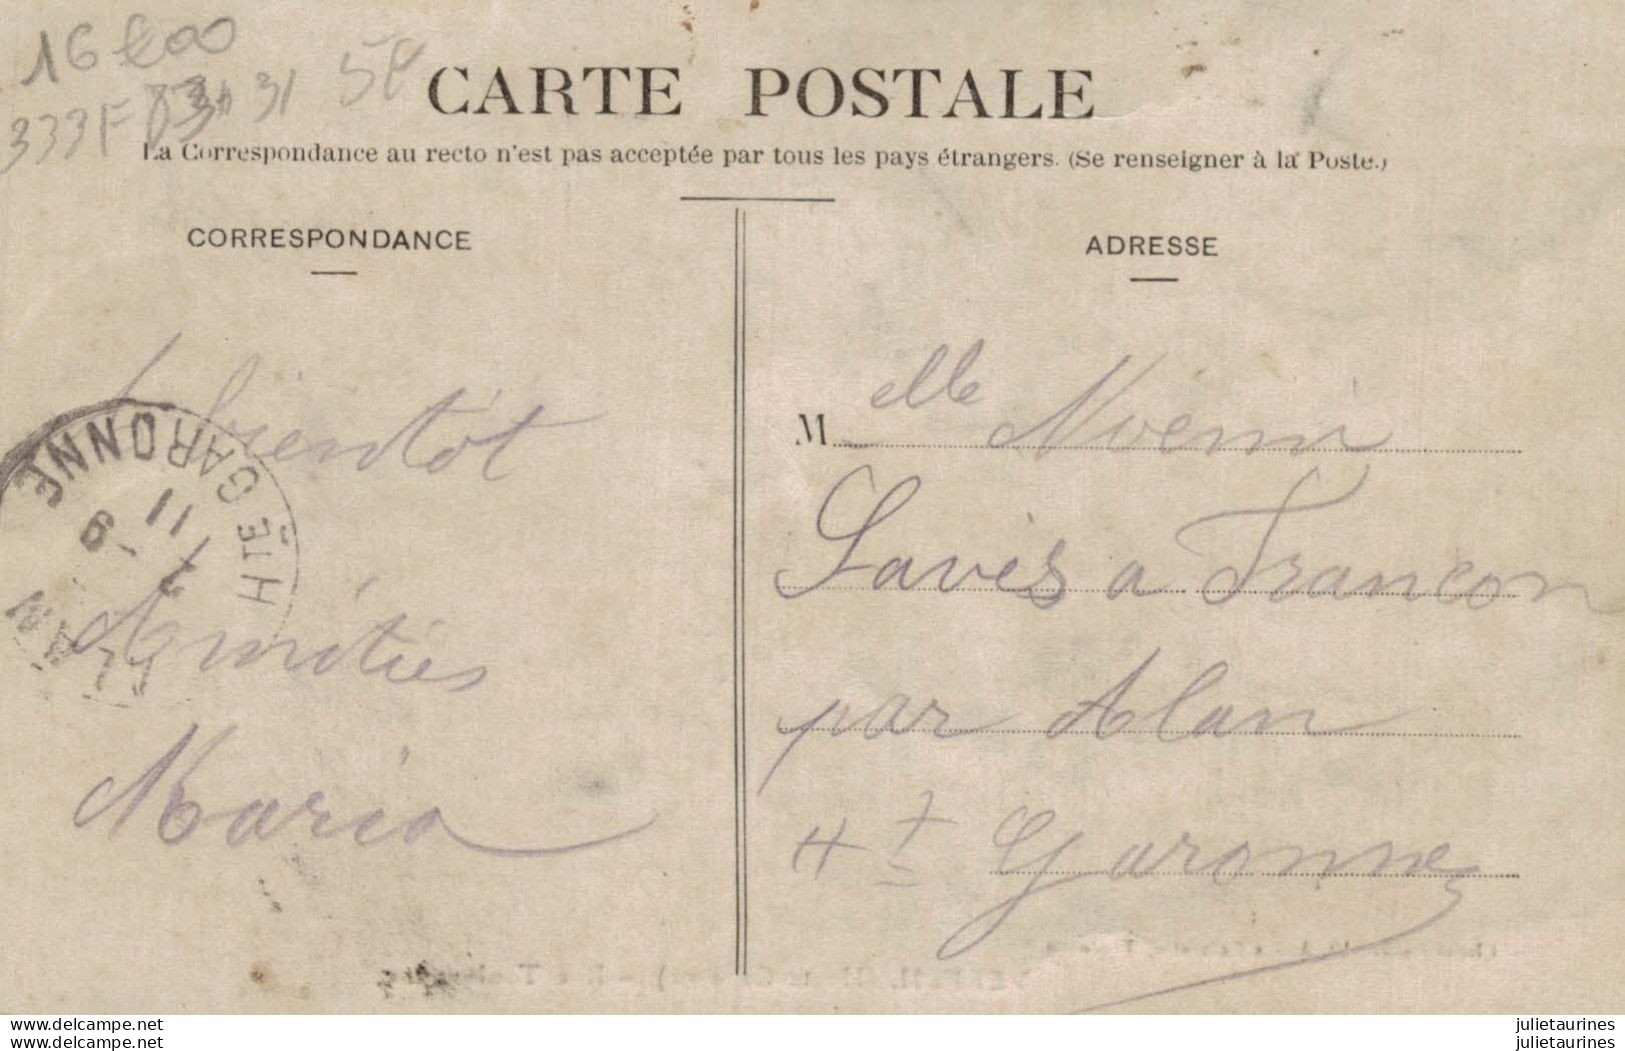 16 €00
333F 83h 31 5F
CARTE POSTALE
La Correspondance au recto n'est pas acceptée par tous les pays étrangers. (Se renseigner à la Poste.)
CORRESPONDANCE
A bientôt
Amitiés
Maria
HTE GARONNE
11
ALAN
ADRESSE
Melle Noémi
Lavis a Francon
par Alan
Hte Garonne
www.delcampe.net
Maximum online
julietaurines
julietaurines